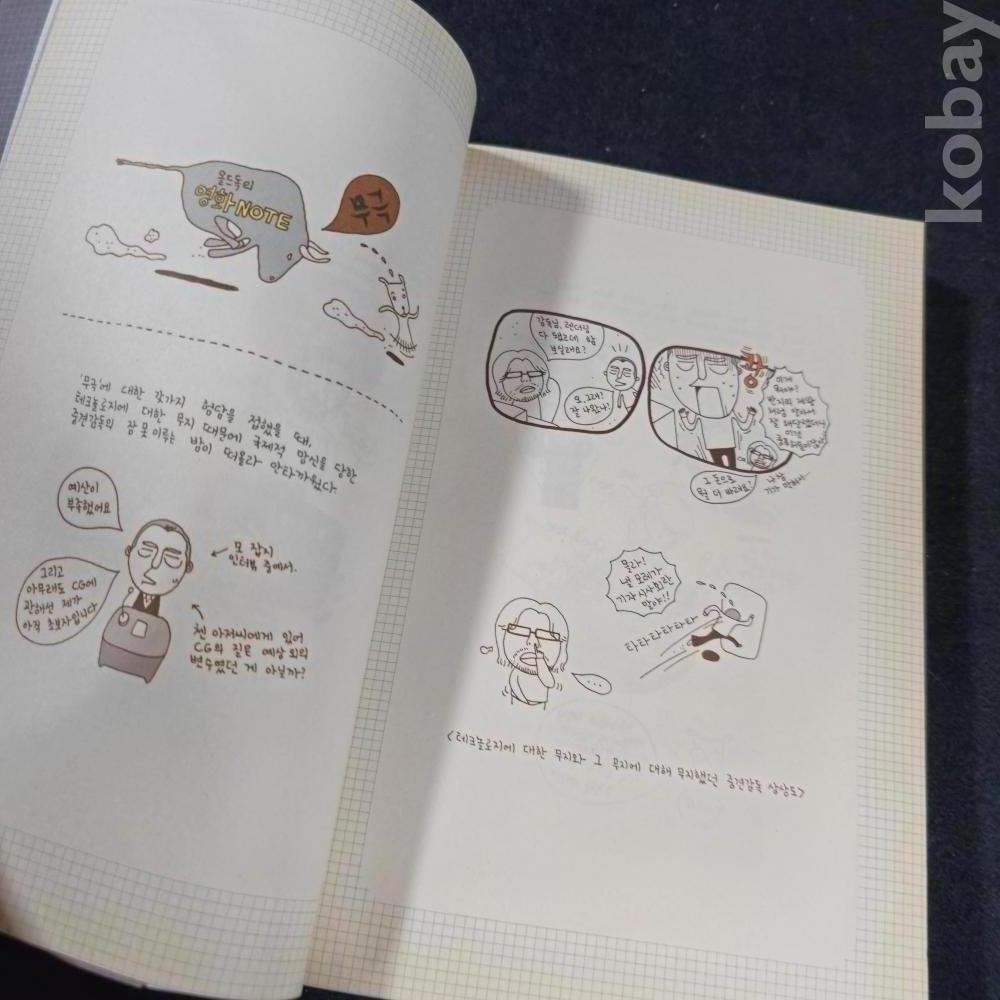 올드독의
영화NOTE
무극
'무극'에 대한 갖가지 험담을 접했을 때,
테크놀로지에 대한 무지 때문에 국제적 망신을 당한
중견감독의 잠 못 이루는 밤이 떠올라 안타까웠다.
예산이
부족했어요
모 잡지
인터뷰 중에서.
그리고
아무래도 CG에
관해선 제가
아직 초보자입니다
첸 아저씨에게 있어
CG의 질은 예상 외의
변수였던 게 아닐까?
감독님, 렌더링
다 됐는데 함
보실래요?
오, 그래?
잘 나왔나?
쿵
이게
뭐야?
반지의 제왕
처럼 알아서
잘 해달랬더니
이건
그 돈으로
뭘 더 바래요?
나 참
기가 막혀서..
몰라!
낼 모레가
기자시사회란
말야!!
타타타타타타
...
<테크놀로지에 대한 무지와 그 무지에 대해 무지했던 중견감독 상상도>
kobay